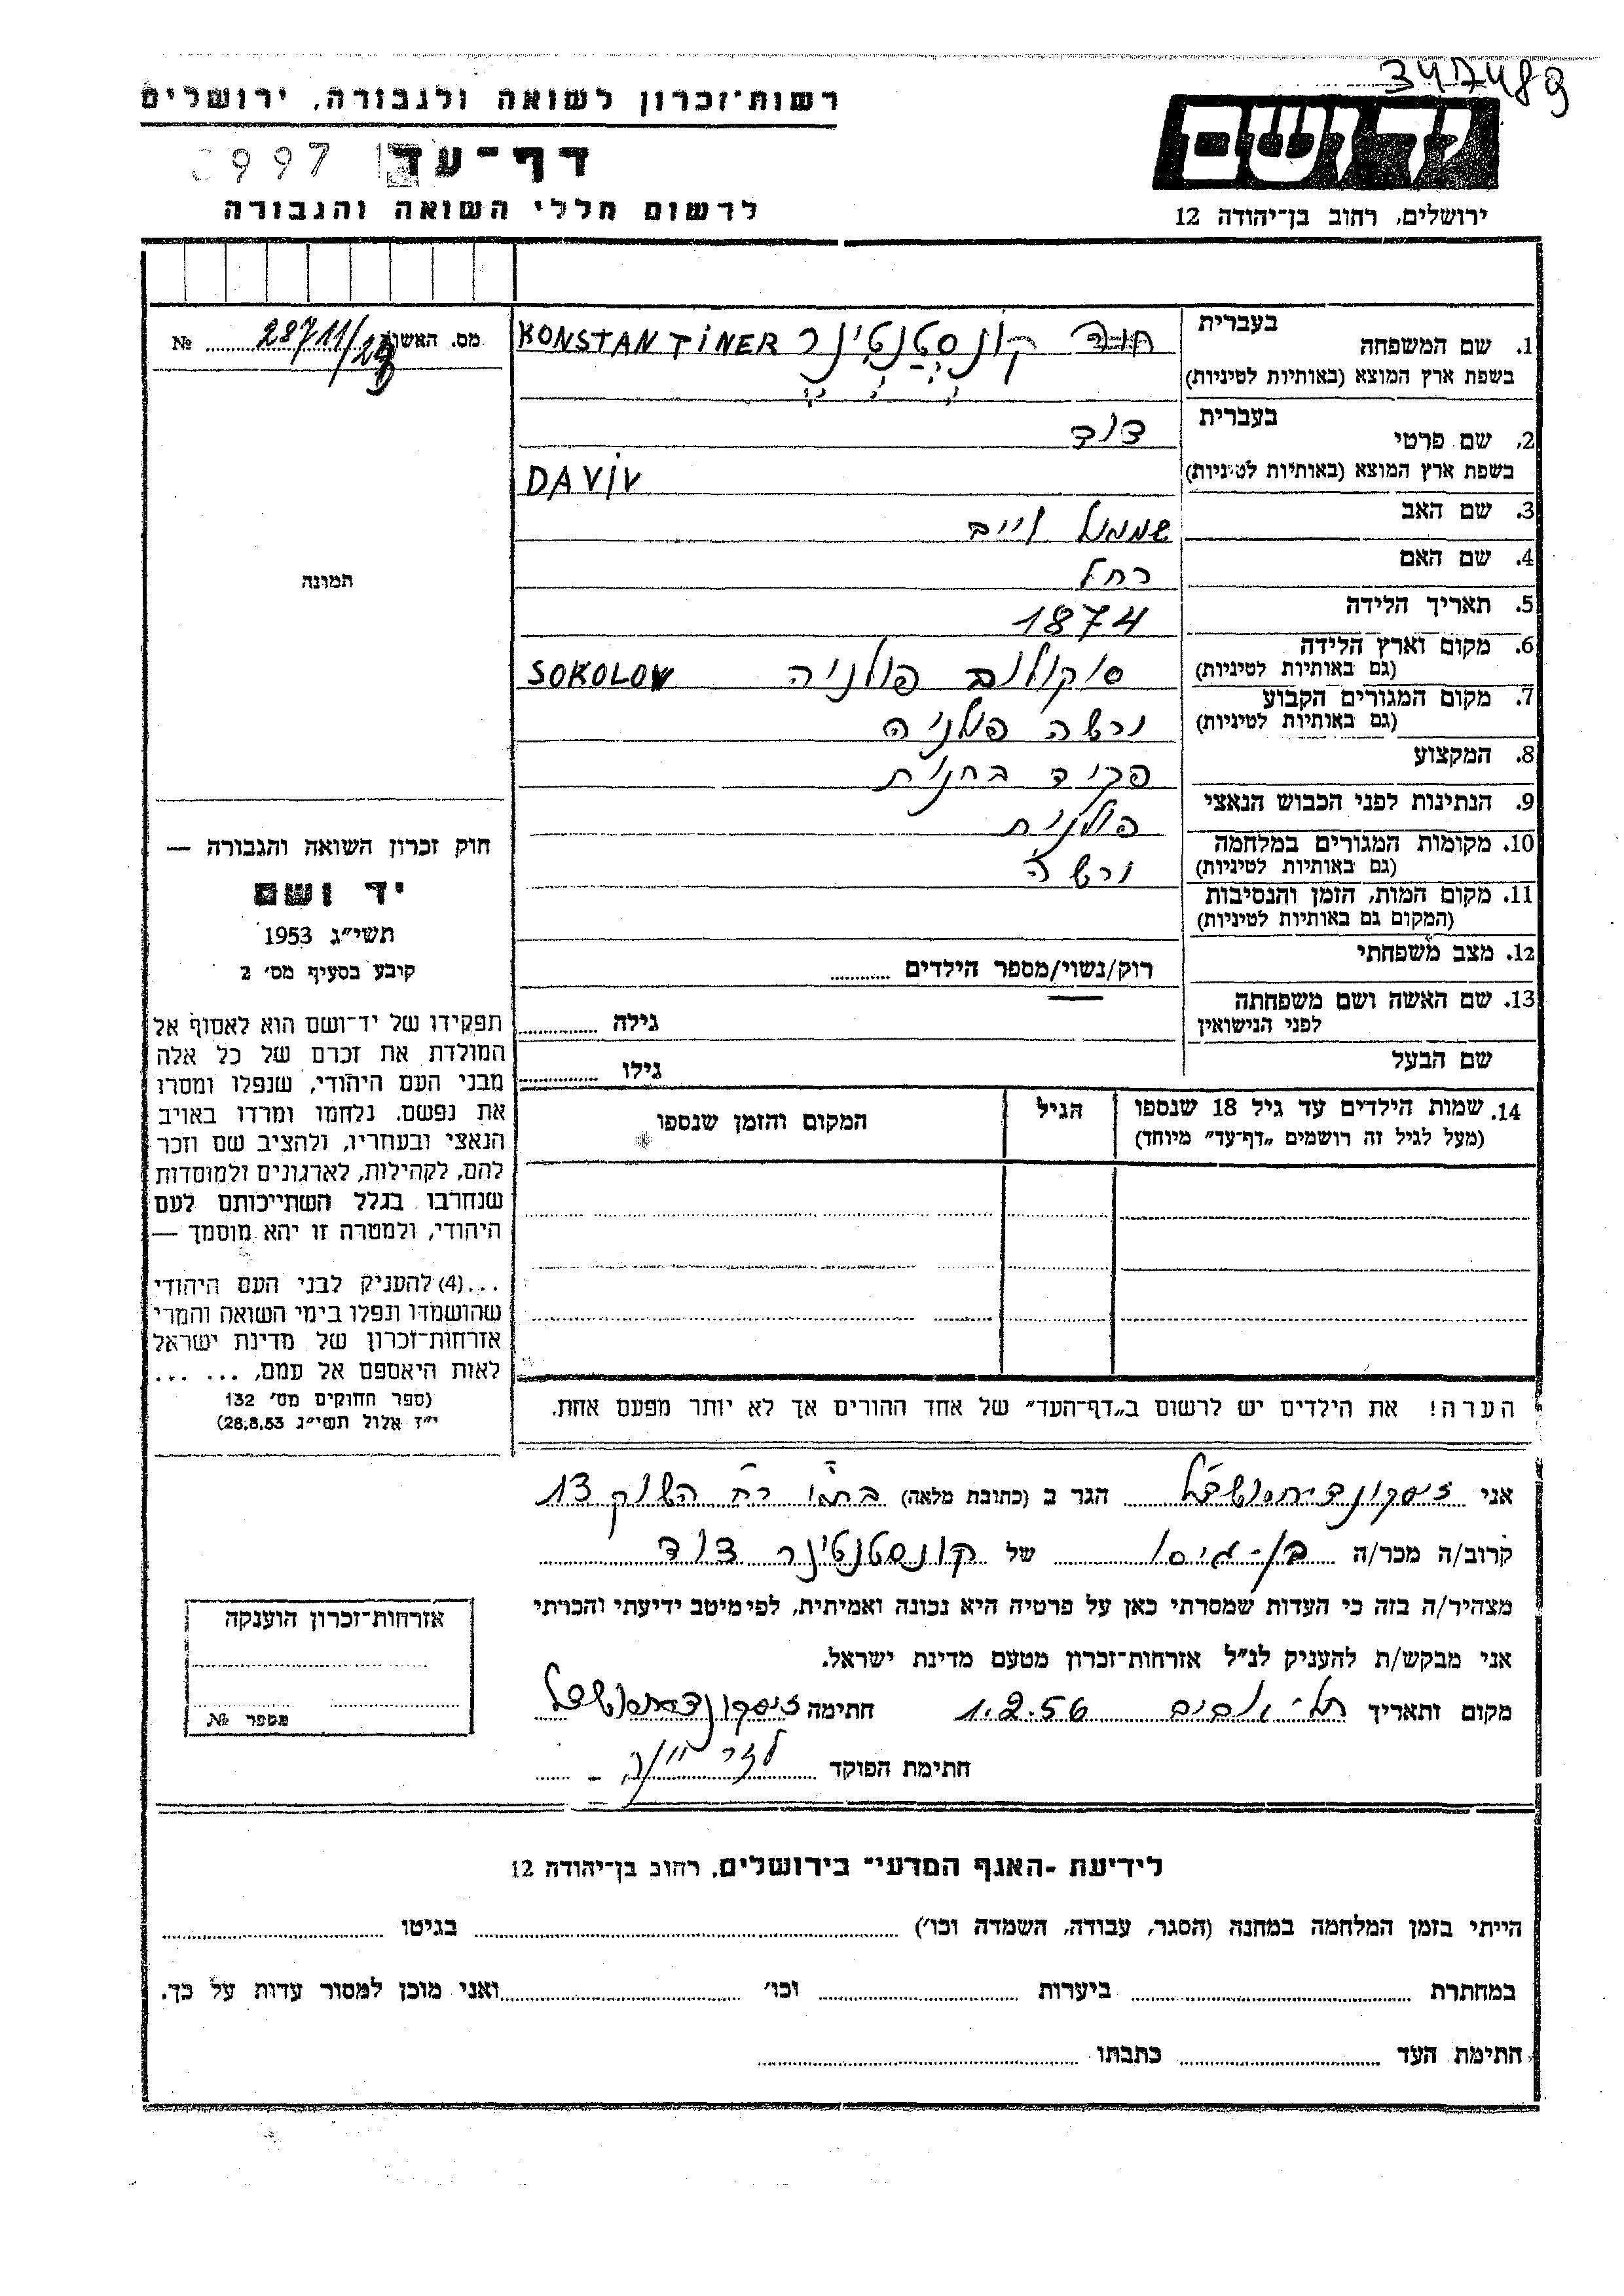 347489
רשות־זכרון לשואה ולגבורה, ירושלים
דף־עד
997
לרשום חללי השואה והגבורה
ידושם
ירושלים, רחוב בן־יהודה 12
מס. האשה № 28711/29
תמונה
חוק זכרון השואה והגבורה —
יד ושם
תשי״ג 1953
קובע בסעיף מס׳ 2
תפקידו של יד־ושם הוא לאסוף אל
המולדת את זכרם של כל אלה
מבני העם היהודי, שנפלו ומסרו
את נפשם. נלחמו ומרדו באויב
הנאצי ובעוזריו, ולהציב שם וזכר
להם, לקהילות, לארגונים ולמוסדות
שנחרבו בגלל השתייכותם לעם
היהודי, ולמטרה זו יהא מוסמך —
...(4) להעניק לבני העם היהודי
שהושמדו ונפלו בימי השואה והמרי
אזרחות־זכרון של מדינת ישראל
לאות היאספם אל עמם, ... ...
(ספר החוקים מס׳ 132
י״ז אלול תשי״ג 28.8.53)
בעברית
1. שם המשפחה קונסטנטינר KONSTANTINER
בשפת ארץ המוצא (באותיות לטיניות)
בעברית
2. שם פרטי דוד
בשפת ארץ המוצא (באותיות לטיניות) DAVIV
3. שם האב שמואל
4. שם האם רחל
5. תאריך הלידה 1874
6. מקום וארץ הלידה סוקולוב פולניה SOKOLOW
(גם באותיות לטיניות)
7. מקום המגורים הקבוע ורשה פולניה
(גם באותיות לטיניות)
8. המקצוע פקיד בחנות
9. הנתינות לפני הכבוש הנאצי פולנית
10. מקומות המגורים במלחמה ורשה
(גם באותיות לטיניות)
11. מקום המות, הזמן והנסיבות
(המקום גם באותיות לטיניות)
12. מצב משפחתי רוק/נשוי/מספר הילדים
13. שם האשה ושם משפחתה גילה
לפני הנישואין
שם הבעל גילו
14. שמות הילדים עד גיל 18 שנספו הגיל המקום והזמן שנספו
(מעל לגיל זה רושמים „דף־עד״ מיוחד)
הערה! את הילדים יש לרשום ב„דף־העד״ של אחד ההורים אך לא יותר מפעם אחת.
אני הגר ב (כתובת מלאה) רח השוק 13
קרוב/ה מכר/ה בן-גיסו של קונסטנטינר דוד
מצהיר/ה בזה כי העדות שמסרתי כאן על פרטיה היא נכונה ואמיתית, לפי מיטב ידיעתי והכרתי
אני מבקש/ת להעניק לנ״ל אזרחות־זכרון מטעם מדינת ישראל.
מקום ותאריך תל-אביב 1.2.56 חתימה
חתימת הפוקד
אזרחות־זכרון הוענקה
מספר №
לידיעת ־האגף המדעי־ בירושלים, רחוב בן־יהודה 12
הייתי בזמן המלחמה במחנה (הסגר, עבודה, השמדה וכו׳) בגיטו
במחתרת ביערות וכו׳ ואני מוכן למסור עדות על כך.
חתימת העד כתבתו